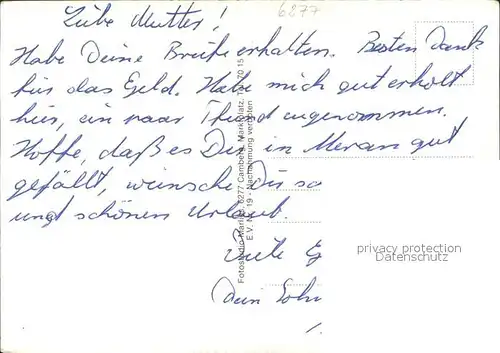 Liebe Mutter!
6277
Habe Deine Briefe erhalten. Besten Dank
für das Geld. Habe mich gut erholt
hier, ein paar Pfund zugenommen.
Hoffe, daß es Dir in Meran gut
gefällt, wünsche Dir so
schönen Urlaub.
Viele G
Dein Sohn
Fotostudio 6277 Camberg, Marktplatz, 70 15
E.V. Nr. 19 - Nachahmung verboten
privacy protection
Datenschutz